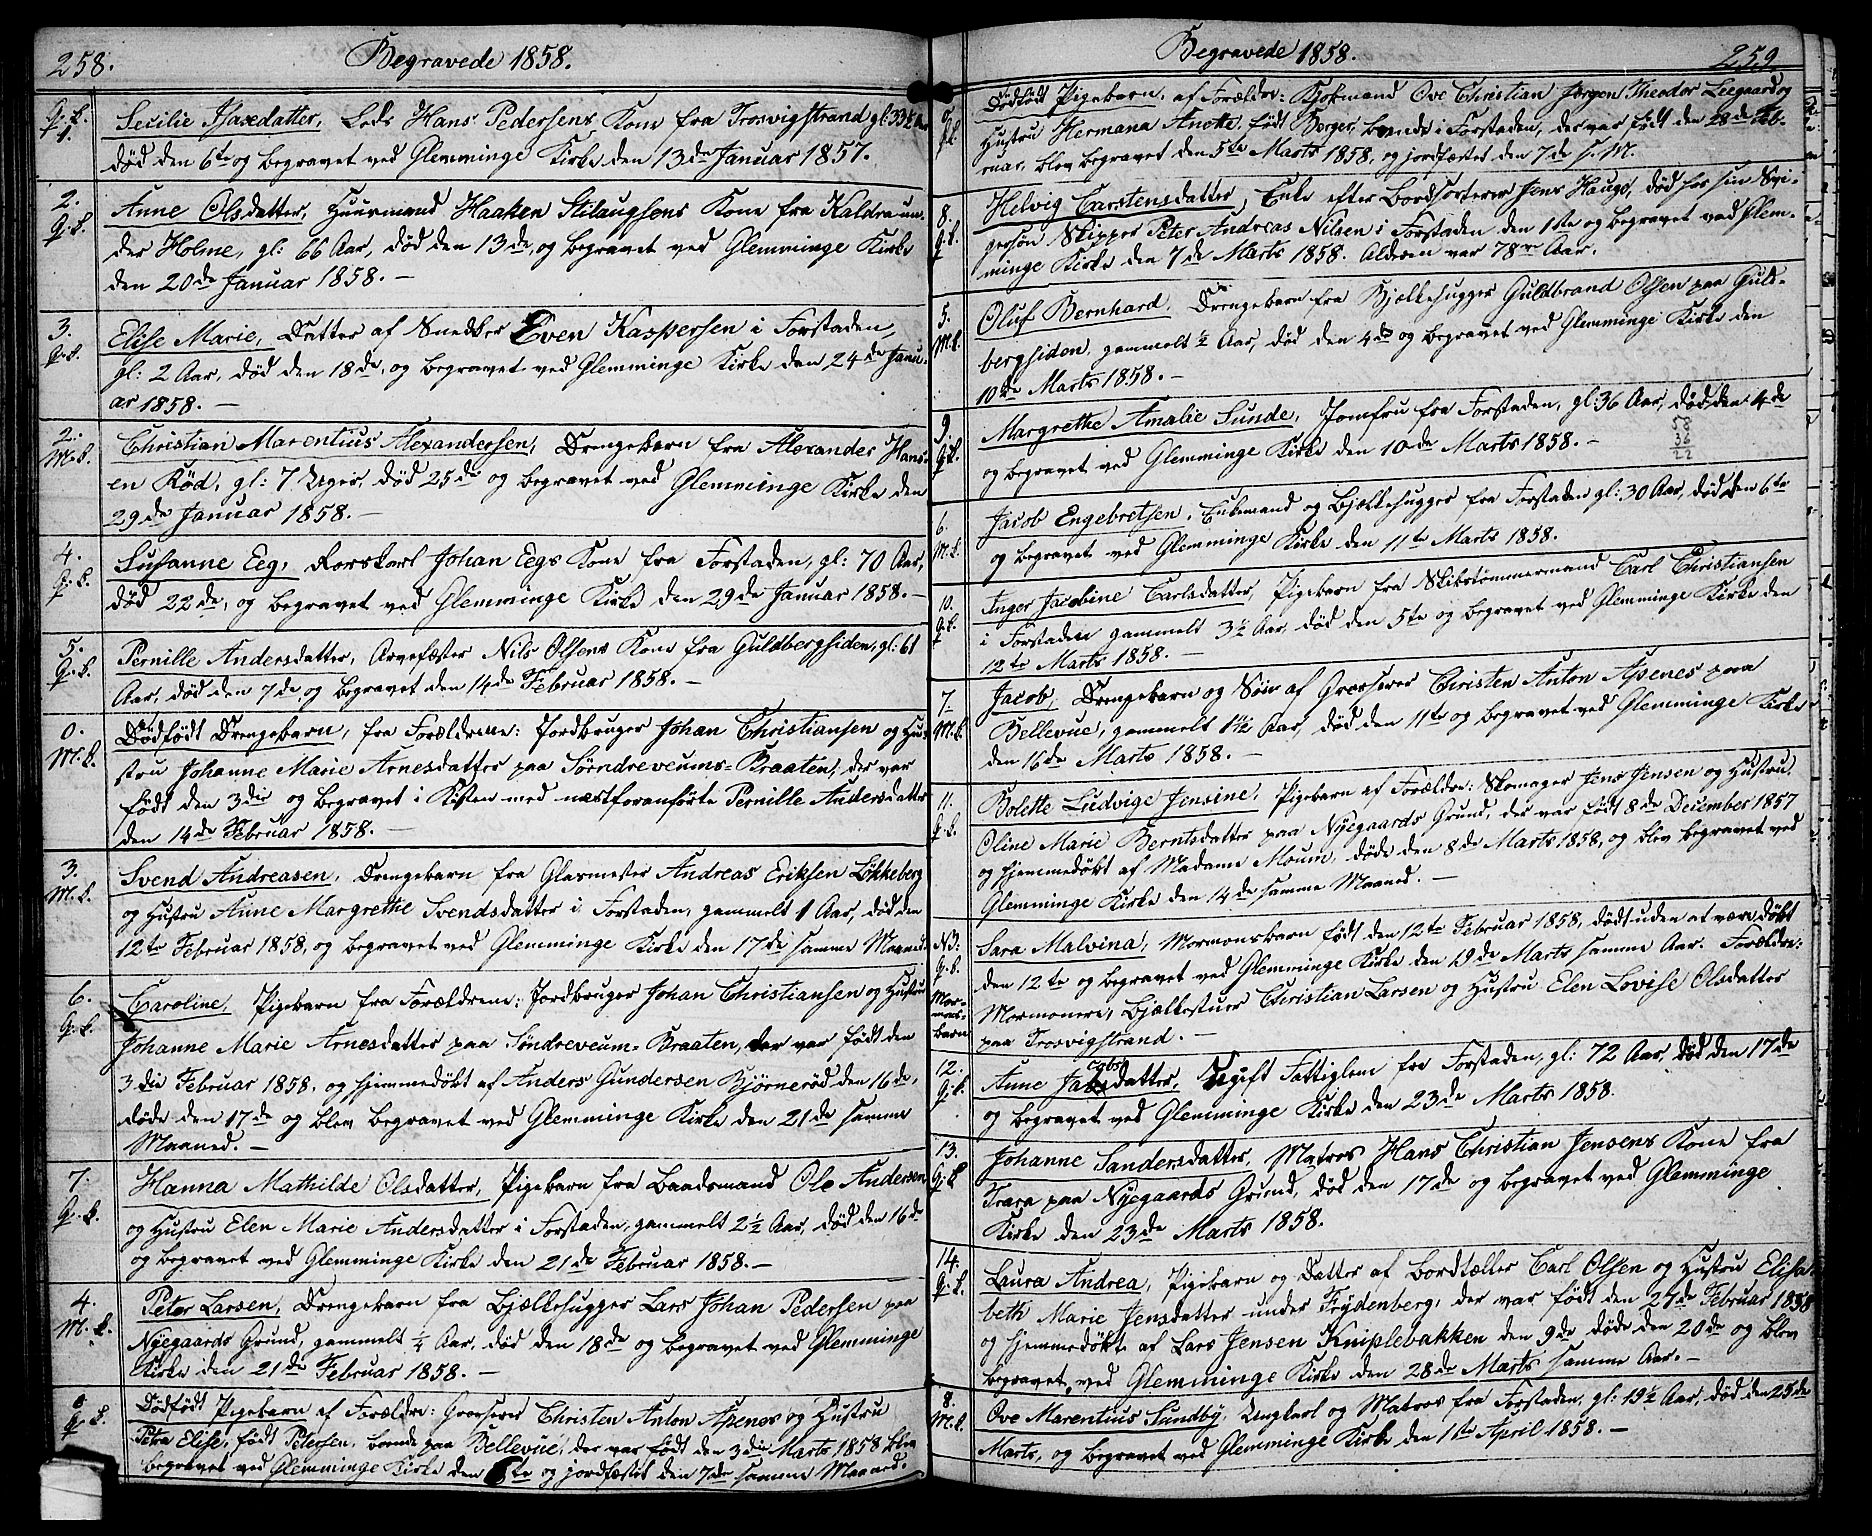 258.
Begravede 1858.
Q.k.
1.
Secilie Isaxedatter, Lods Hans Pedersens Kone fra Trosvigstrand gl: 33½ Aar
død den 6te og begravet ved Glemminge Kirke den 13de Januar 1857.
2.
Q.k.
Anne Olsdatter, Huusmand Haaken Stilaugsens Kone fra Kaldraun-
der Holme, gl: 66 Aar, død den 13de, og begravet ved Glemminge Kirke
den 20de Januar 1858. –
3.
Q.k.
Elise Marie, Datter af Snedker Even Kaspersen i Forstaden,
gl: 2 Aar, død den 18de, og begravet ved Glemminge Kirke den 24de Janu-
ar 1858. –
2.
M.k.
Christian Marentius Alexandersen, Drengebarn fra Alexander Hans-
en Rød, gl: 7 Uger, død 25de og begravet ved Glemminge Kirke den
29de Januar 1858. –
4.
Q.k.
Susanne Eeg, Rorskarl Johan Eegs Kone fra Forstaden, gl: 70 Aar,
død 22de, og begravet ved Glemminge Kirke den 29de Januar 1858. –
5.
Q.k.
Pernille Andersdatter, Arvefæster Nils Olsens Kone fra Guldbergsiden, gl: 61
Aar, død den 7de og begravet den 14de Februar 1858. –
0.
M.k.
Dødfødt Drengebarn, fra Forældrene: Jordbruger Johan Christiansen og Hu-
stru Johanne Marie Arnesdatter paa Sørndreveums-Braaten, der var
født den 3die og begravet i Kisten med næstforanførte Pernille Andersdatter
den 14de Februar 1858. –
3.
M.k.
Svend Andreasen, Drengebarn fra Glasmester Andreas Eriksen Løkkeberg
og Hustru Anne Margrethe Svendsdatter i Forstaden, gammelt 1 Aar, død den
12te Februar 1858, og begravet ved Glemminge Kirke den 17de samme Maaned.
6.
Q.k.
Caroline, Pigebarn fra Forældrene: Jordbruger Johan Christiansen og Hustru
Johanne Marie Arnesdatter paa Søndreveum-Braaten, der var født den
3die Februar 1858, og hjemmedøbt af Anders Gundersen Bjørnerød den 16de,
døde den 17de og blev begravet ved Glemminge Kirke den 21de samme
Maaned. –
7.
Q.k.
Hanna Mathilde Olsdatter, Pigebarn fra Baadsmand Ole Andersen
og Hustru Elen Marie Andersdatter i Forstaden, gammelt 2½ Aar, død den 16de
og begravet ved Glemminge Kirke den 21de Februar 1858. –
4.
M.k.
Peter Larsen, Drengebarn fra Bjælkehugger Lars Johan Pedersen paa
Nyegaards Grund, gammelt ¼ Aar, død den 18de og begravet ved Glemminge
Kirke den 21de Februar 1858. –
0
Q.k.
Dødfødt Pigebarn af Forældre: Grosserer Christen Anton Apenes og Hustru
Petra Elise, født Petersen, boende paa Bellevue, der var født den 3die Marts 1858 blev
begravet ved Glemminge Kirke den 6te og jordfæstet den 7de samme Maaned.
Begravede 1858.
259
0.
Q.k.
Dødfødt Pigebarn, af Forældre: Kjøbmand Ove Christian Jørgen Theodor Leegaard og
Hustru Hermana Anette, født Borger, boende i Forstaden, der var født den 28de Feb-
ruar, blev begravet den 5te Marts 1858, og jordfæstet den 7de s. M.
8.
Q.k.
Helvig Carstensdatter, Enke efter Bordsorterer Jens Hauge, død hos sin Svi-
gersøn Skipper Peter Andreas Nilsen i Forstaden den 1ste og begravet ved Glem-
minge Kirke den 7de Marts 1858. Alderen var 78 Aar.
5.
M.k.
Oluf Bernhard, Drengebarn fra Bjælkehugger Guldbrand Olsen paa Guld-
bergsiden, gammelt ½ Aar, død den 4de og begravet ved Glemminge Kirke den
10de Marts 1858. –
9.
Q.k.
Margrethe Amalie Sunde, Jomfru fra Forstaden, gl: 36 Aar, død den 4de
og begravet ved Glemminge Kirke den 10de Marts 1858. –
58
36
22
6.
M.k.
Jacob Engebretsen, Enkemand og Bjælkehugger fra Forstaden gl: 30 Aar, død den 6te
og begravet ved Glemminge Kirke den 11te Marts 1858.
10.
Q.k.
Inger Jacobine Carlsdatter, Pigebarn fra Skibstømmermand Carl Christiansen
i Forstaden gammelt 3½ Aar, død den 5te og begravet ved Glemminge Kirke den
12te Marts 1858. –
7
M.k.
Jacob, Drengebarn og Søn af Grosserer Christen Anton Apenes paa
Bellevue, gammelt 1½ Aar, død den 11te og begravet ved Glemminge Kirke
den 16de Marts 1858. –
11.
Q.k.
Bolette Ludvige Jensine, Pigebarn af Forældre: Skomager Jens Jensen og Hustru,
Oline Marie Berntsdatter paa Nyegaards Grund, der var født 8de December 1857
og hjemmedøbt af Madame Moum, døde den 8de Marts 1858, og blev begravet ved
Glemminge Kirke den 14de samme Maaned. –
N3:
Q.k.
Mor-
mons-
barn
Sara Malvina, Mormonsbarn født den 12te Februar 1858, død uden at være døbt
den 12te og begravet ved Glemminge Kirke den 19de Marts samme Aar. Forældre:
Mormoneri, Bjælkestuer Christian Larsen og Hustru Elen Lovise Olsdatter
paa Trosvigstrand. –
12.
Q.k.
Anne Jacobsdatter, Ugift Fattiglem fra Forstaden, gl: 72 Aar, død den 17de
og begravet ved Glemminge Kirke den 23de Marts 1858.
13.
Q.k
Johanne Sandersdatter, Matros Hans Christian Jensens Kone fra
Trara paa Nyegaards Grund, død den 17de og begravet ved Glemminge
Kirke den 23de Marts 1858.
14.
Q.k.
Laura Andrea, Pigebarn og Datter af Bordtæller Carl Olsen og Hustru Elisa-
beth Marie Jensdatter under Frydenberg, der var født den 27de Februar 1858
og hjemmedøbt af Lars Jensen Kniplebakken den 9de, døde den 20de og blev
begravet ved Glemminge Kirke den 28de Marts samme Aar. –
8.
M.k.
Ove Marentius Sundby, Ungkarl og Matros fra Forstaden, gl: 19½ Aar, død den 25de
Marts, og begravet ved Glemminge Kirke den 1ste April 1858. –